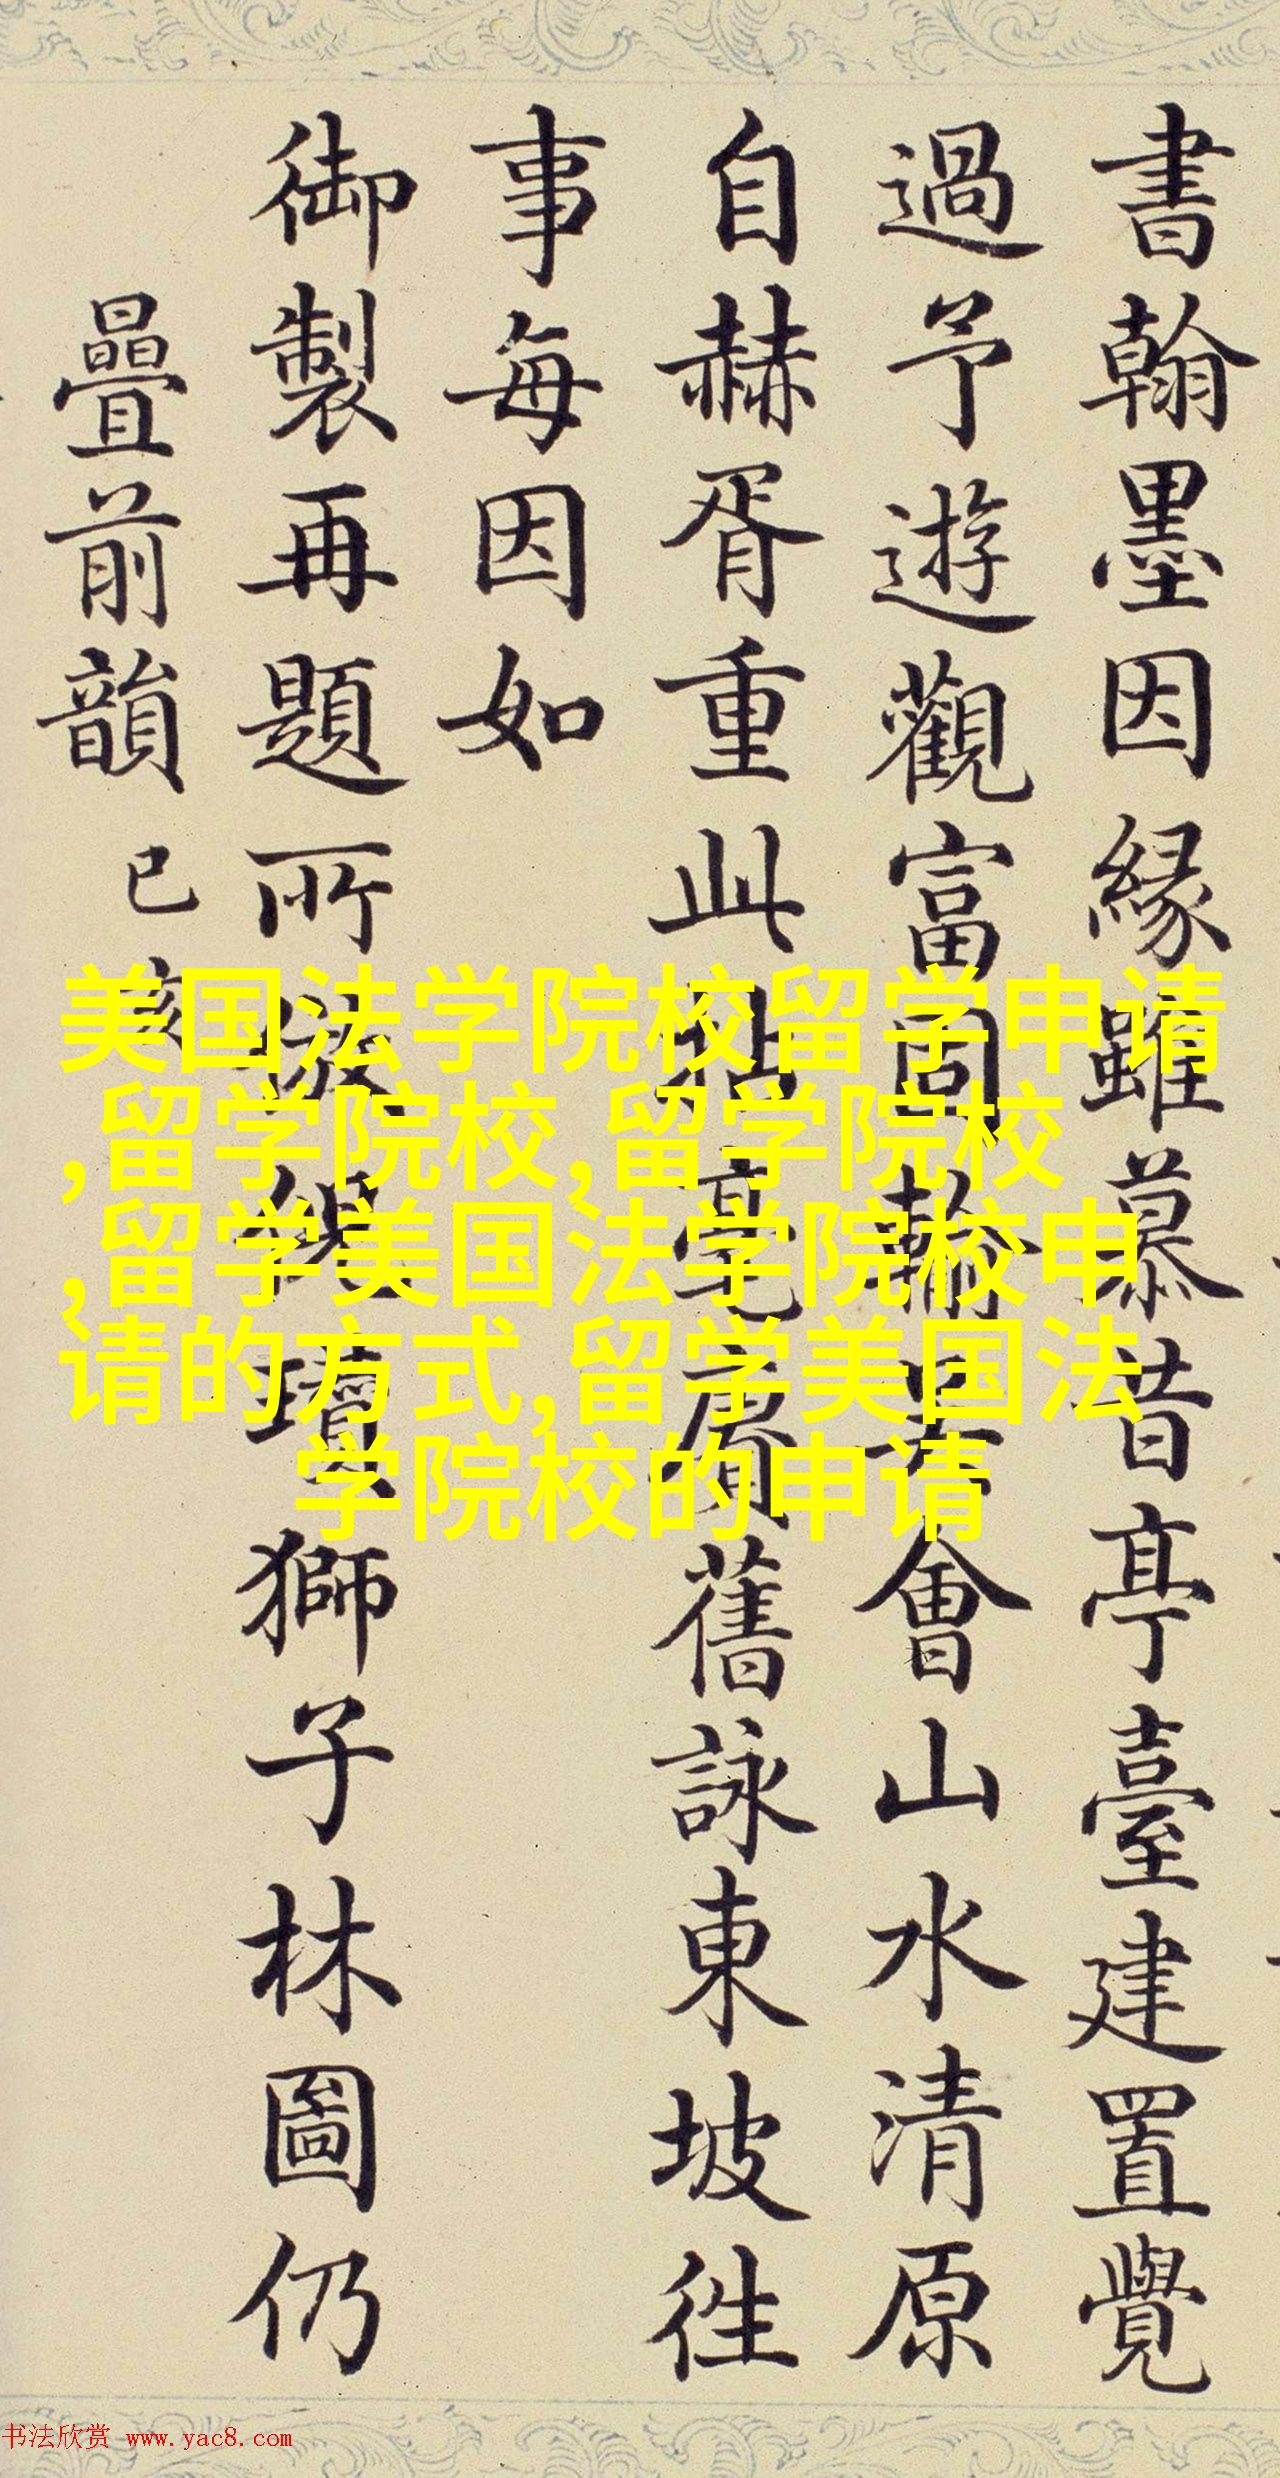 書翰墨因緣雖慕昔亭臺建置覺
過予遊觀富固輸吳會山水清原
自赫胥重此拈毫賡舊詠東坡徃
事每因如
御製再題所倣倪瓚獅子林圖仍
疊前韻 己亥
美国法学院校留学申请
,留学院校,留学院校
,留学美国法学院校申
请的方式,留学美国法
学院校的申请
书法欣赏 www.yac8.com